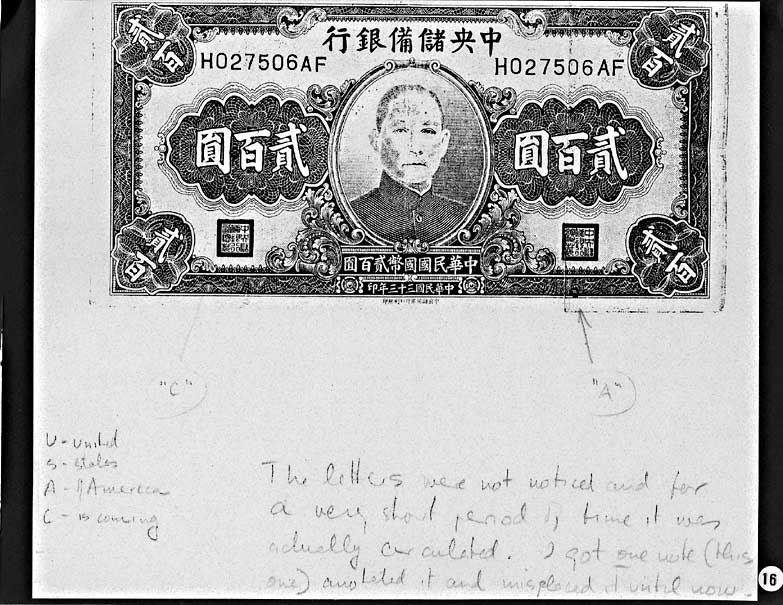 貳百
中央儲備銀行
貳百
H027506AF
H027506AF
貳百圓
貳百圓
貳百
貳百
中華民國國幣貳百圓
中華民國三十三年印
"C"
"A"
U - United
S - states
A - of America
C - is coming
The letters were not noticed and for
a very short period of time it was
actually circulated. I got one note (this
one) anotated it and misplaced it until now.
16